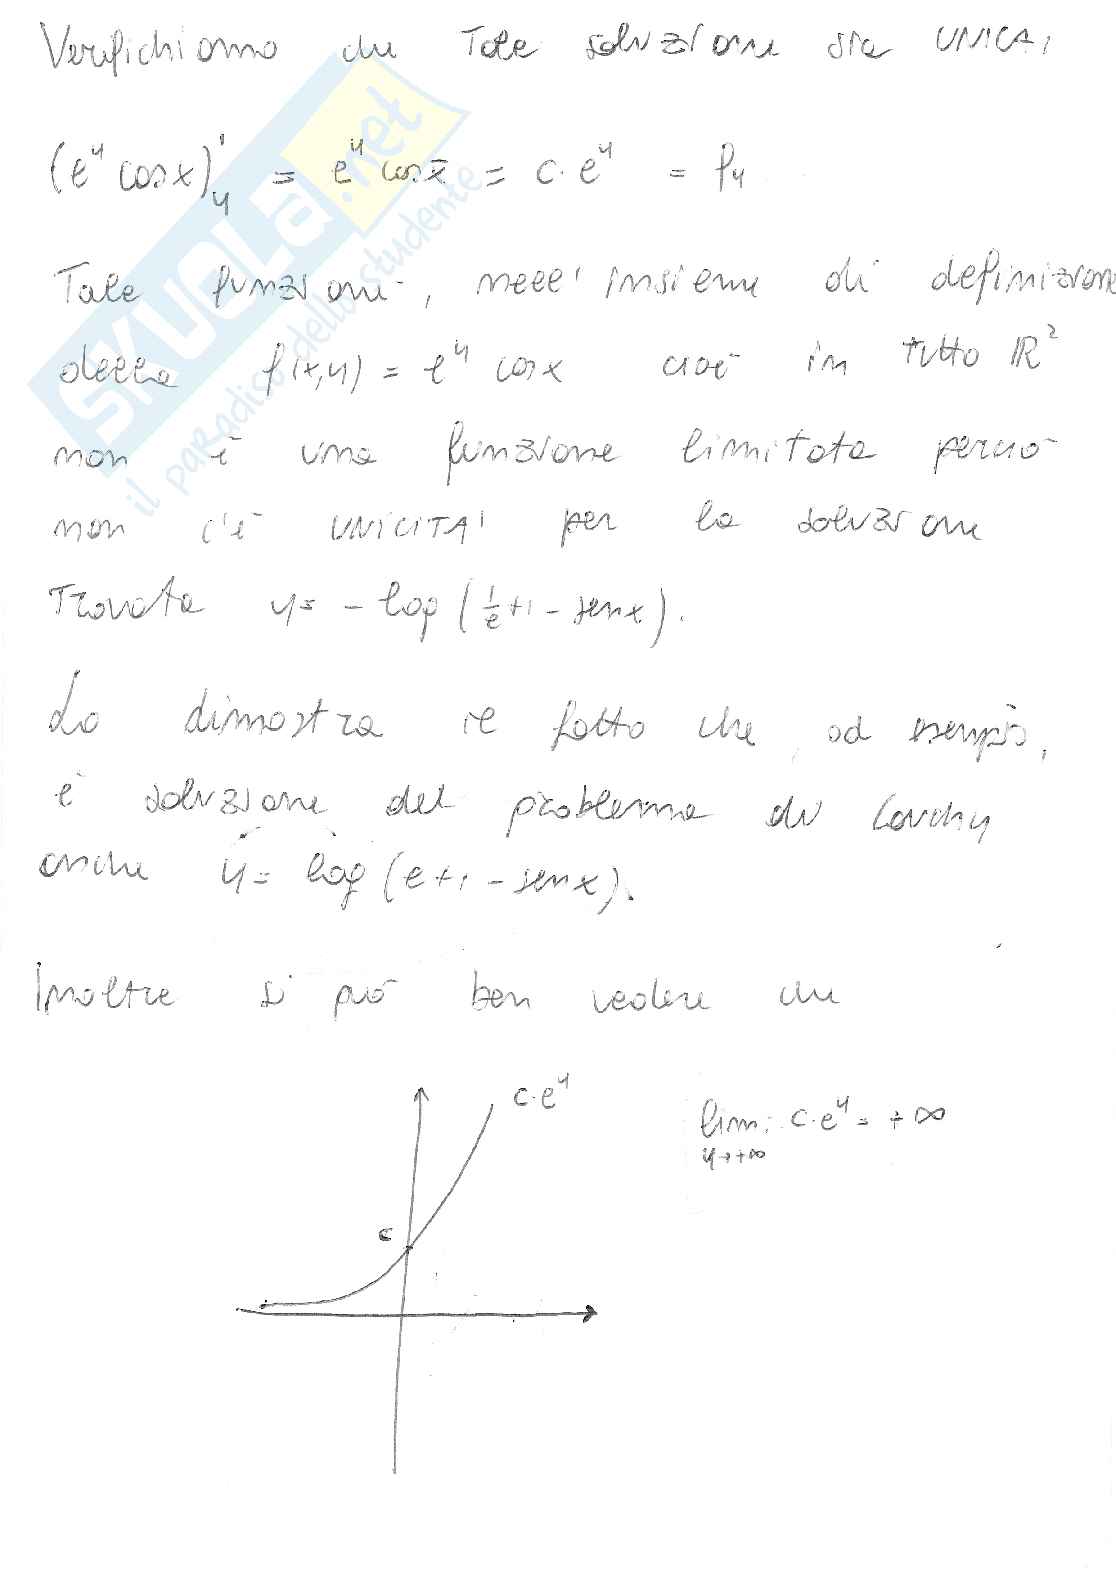 Verifichiamo che Tale soluzione sia UNICA,
(e^y cosx)'_y = e^y cos x̄ = c·e^y = f_y
Tale funzione, nell'insieme di definizione
della f(x,y) = e^y cosx cioè in tutto ℝ²
non è una funzione limitata perciò
non c'è UNICITA' per la soluzione
Trovata y = - log (1/e + 1 - senx).
Lo dimostra il fatto che, ad esempio,
è soluzione del problema di Cauchy
anche y = log (e + 1 - senx).
Inoltre si può ben vedere che
c·e^y
lim c·e^y = +∞
y→+∞
c
SKUOLA.net
il paradiso dello studente